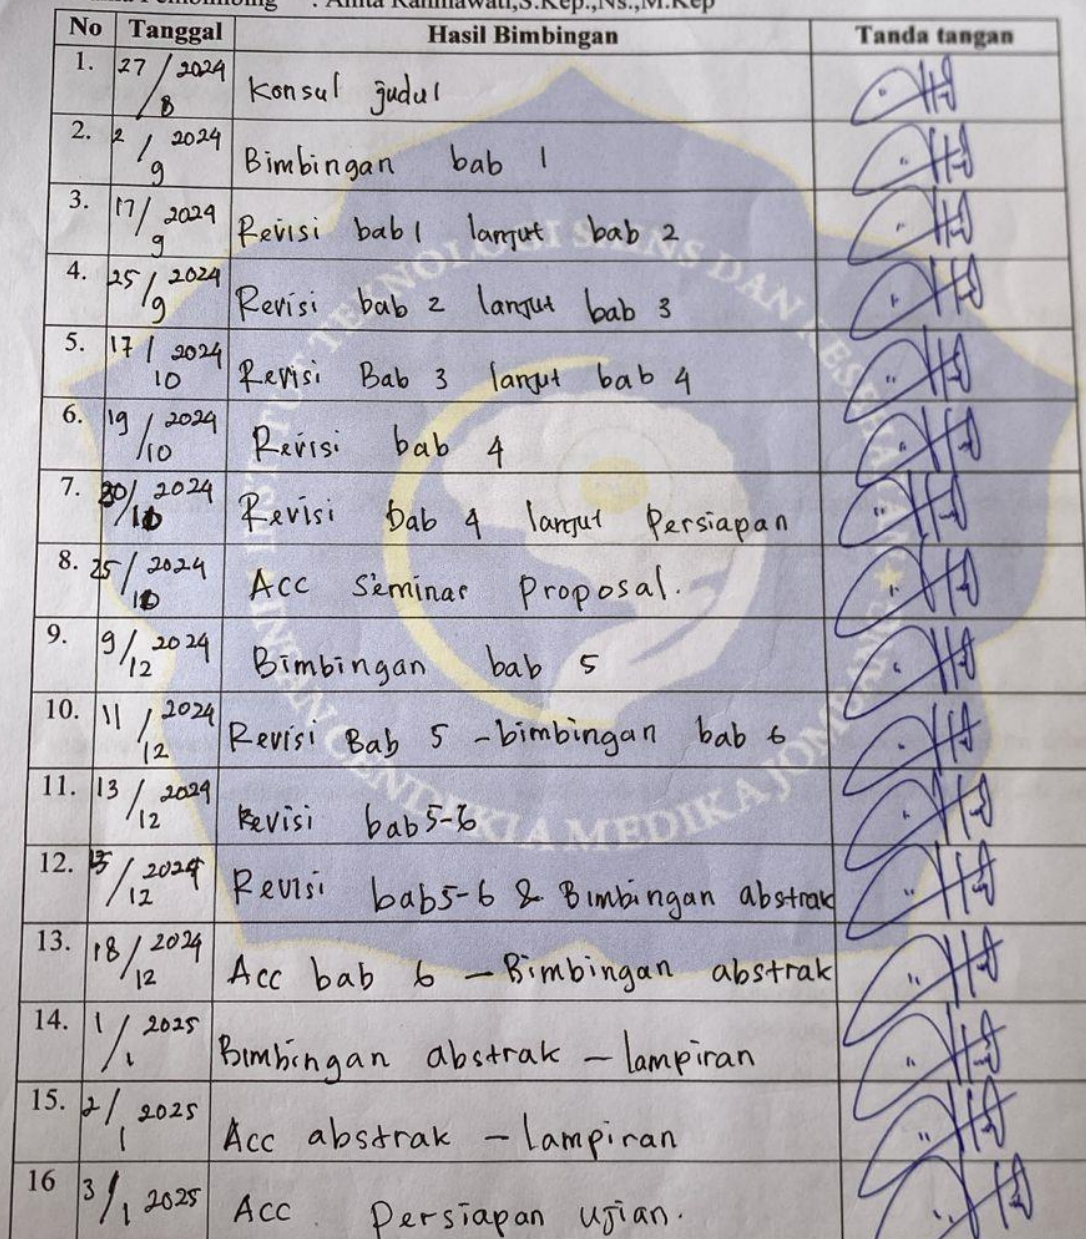 : Anita Rahmawati,S.Kep.,Ns.,M.Kep
No Tanggal Hasil Bimbingan Tanda tangan
1. 27/8 2024 Konsul judul
2. 2/9 2024 Bimbingan bab 1
3. 17/9 2024 Revisi bab 1 lanjut bab 2
4. 25/9 2024 Revisi bab 2 lanjut bab 3
5. 17/10 2024 Revisi Bab 3 lanjut bab 4
6. 19/10 2024 Revisi bab 4
7. 20/10 2024 Revisi bab 4 lanjut Persiapan
8. 25/10 2024 Acc Seminar Proposal.
9. 9/12 2024 Bimbingan bab 5
10. 11/12 2024 Revisi Bab 5 - bimbingan bab 6
11. 13/12 2024 Revisi bab 5-6
12. 15/12 2024 Revisi bab 5-6 & Bimbingan abstrak
13. 18/12 2024 Acc bab 6 - Bimbingan abstrak
14. 1/1 2025 Bimbingan abstrak - lampiran
15. 2/1 2025 Acc abstrak - lampiran
16 3/1 2025 Acc Persiapan ujian.
INSTITUT TEKNOLOGI SAINS DAN KESEHATAN
INSAN CENDEKIA MEDIKA JOMBANG